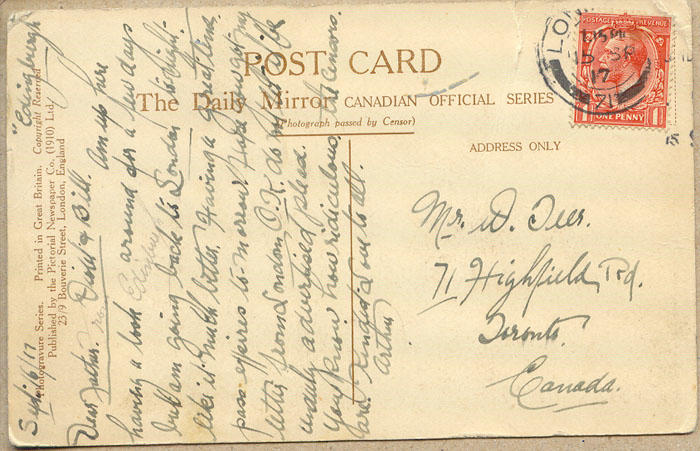 POST CARD
The Daily Mirror CANADIAN OFFICIAL SERIES
(Photograph passed by Censor)
ADDRESS ONLY
POSTAGE REVENUE
ONE PENNY
LON
15 SP
17
Mr. W. Teer.
71 Highfield Rd.
Toronto.
Canada.
Photogravure Series. Printed in Great Britain. Copyright Reserved
Published by the Pictorial Newspaper Co. (1910) Ltd.
23/9 Bouverie Street, London, England
Sept. 6/17 "Edinburgh"
Dear David & Bill. Am up here
having a look around for a few days
Edinburgh
but am going back to London to-night.
like it much better. Having a great time.
pass expires to-morrow. Hope you got my
letter from London O.K. as my
unduly advertised place.
You know how ridiculous the Censors
are. Kindest love to all.
Arthur